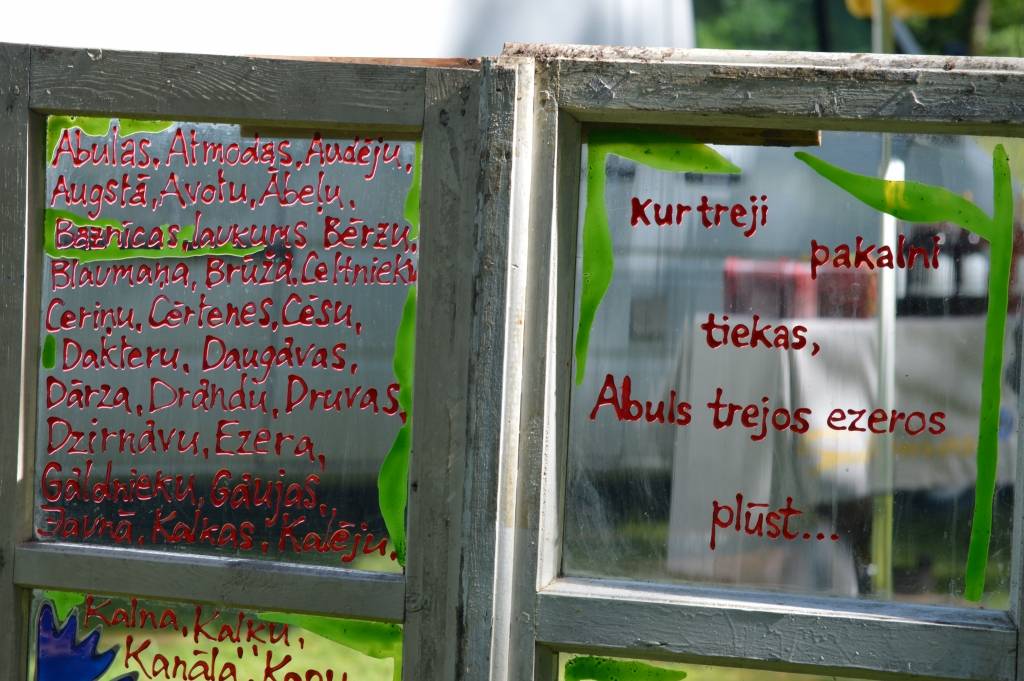 Abulas, Atmodas, Audēju,
Augstā, Avotu, Ābeļu,
Baznīcas, laukums Bērzu,
Blaumaņa, Brūža, Celtnieku
Ceriņu, Cērtenes, Cēsu,
Dakteru, Daugavas,
Dārza, Drandu, Druvas,
Dzirnavu, Ezera,
Galdnieku, Gaujas,
Jaunā, Kalkas, Kalēju,
Kalna, Kalku,
Kanāla,
Kur treji
pakalni
tiekas,
Abuls trejos ezeros
plūst...